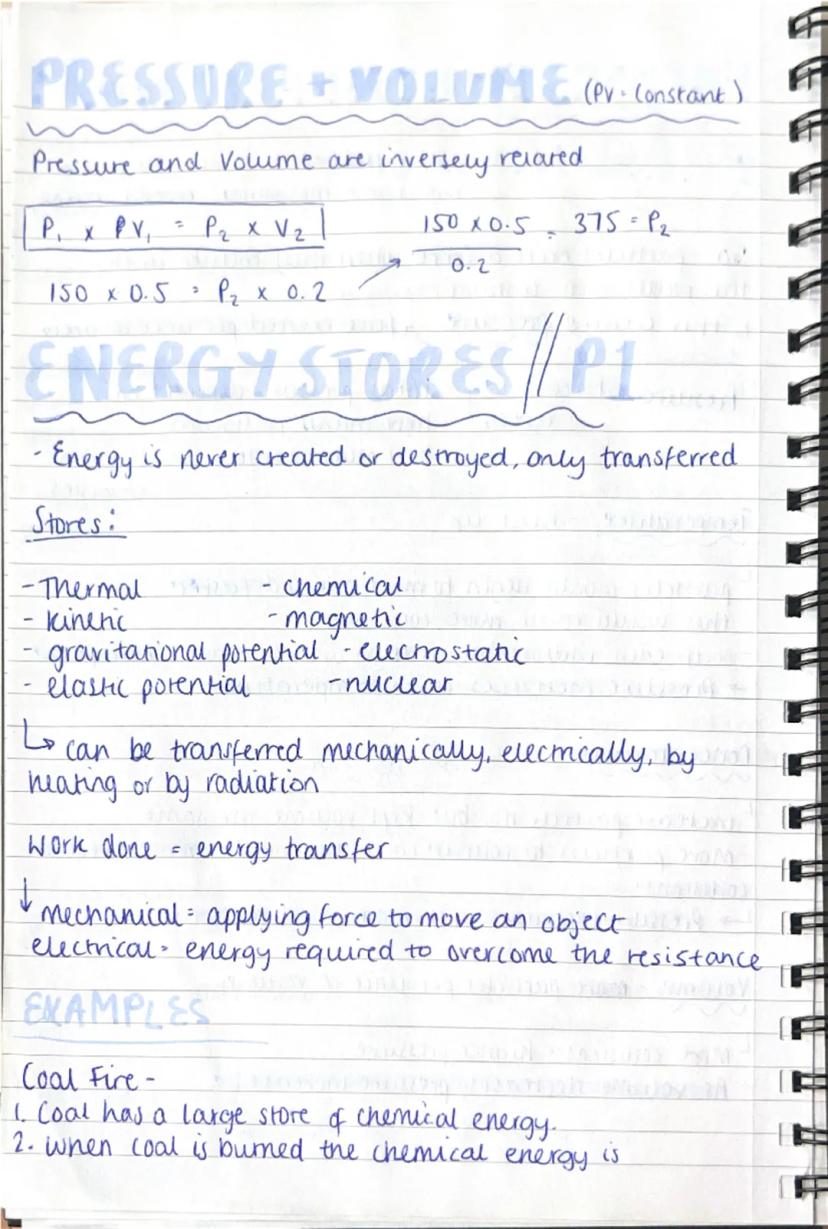 PRESSURE + VOLUME (PV = Constant)
Pressure and Volume are inversely related
P₁ x PV₁ = P₂ x V₂
150 x 0.5 = P₂ x 0.2
150 x 0.5 = 375 = P₂
0.2
ENERGY STORES // P1
- Energy is never created or destroyed, only transferred
Stores:
- Thermal - chemical
- kinetic - magnetic
- gravitational potential - electrostatic
- elastic potential - nuclear
↳ can be transferred mechanically, electrically, by
heating or by radiation
Work done = energy transfer
↓ mechanical = applying force to move an object
electrical = energy required to overcome the resistance
EXAMPLES
Coal Fire -
1. Coal has a large store of chemical energy.
2. When coal is burned the chemical energy is